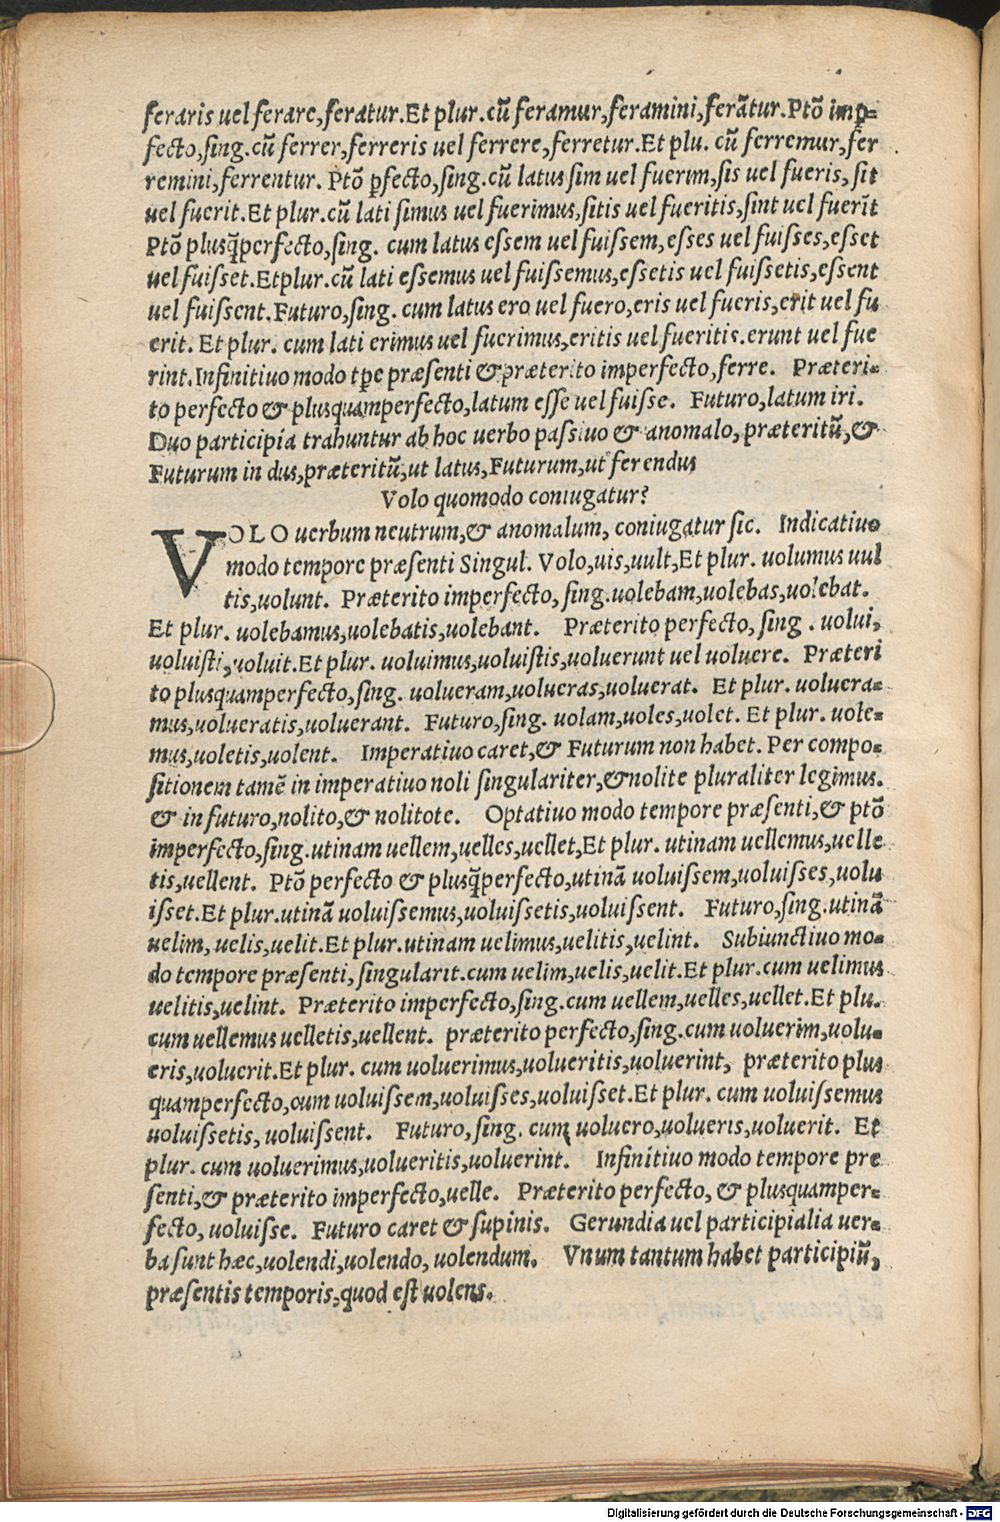 feraris uel ferare,feratur.Et plur.cũ feramur,feramini,ferãtur.Ptõ imꝑ-
fecto,sing.cũ ferrer,ferreris uel ferrere,ferretur.Et plu. cũ ferremur,fer
remini,ferrentur. Ptõ ꝑfecto,sing.cũ latus sim uel fuerim,sis uel fueris, sit
uel fuerit.Et plur.cũ lati simus uel fuerimus,sitis uel fueritis,sint uel fuerĩt
Ptõ plusq̃perfecto,sing. cum latus essem uel fuissem,esses uel fuisses,esset
uel fuisset.Et plur.cũ lati essemus uel fuissemus,essetis uel fuissetis,essent
uel fuissent.Futuro,sing. cum latus ero uel fuero,eris uel fueris,erit uel fu
erit. Et plur. cum lati erimus uel fuerimus,eritis uel fueritis.erunt uel fue
rint.Infinitiuo modo tꝑe præsenti & præterito imperfecto,ferre. Præteri-
to perfecto & plusquamperfecto,latum esse uel fuisse. Futuro,latum iri.
Duo participia trahuntur ab hoc uerbo passiuo & anomalo, præteritũ,&
Futurum in dus,præteritũ,ut latus,Futurum,ut ferendus
Volo quomodo coniugatur?
VOLO uerbum neutrum,& anomalum, coniugatur sic. Indicatiuo
modo tempore præsenti Singul. Volo,uis,uult,Et plur. uolumus uul
tis,uolunt. Præterito imperfecto, sing.uolebam,uolebas,uolebat.
Et plur. uolebamus,uolebatis,uolebant. Præterito perfecto, sing . uolui,
uoluisti,uoluit.Et plur. uoluimus,uoluistis,uoluerunt uel uoluere. Præteri
to plusquamperfecto,sing. uolueram,uolueras,uoluerat. Et plur. uoluera-
mus,uolueratis,uoluerant. Futuro,sing. uolam,uoles,uolet. Et plur. uole-
mus,uoletis,uolent. Imperatiuo caret,& Futurum non habet. Per compo-
sitionem tamẽ in imperatiuo noli singulariter,& nolite pluraliter legimus.
& in futuro,nolito,& nolitote. Optatiuo modo tempore præsenti,& ptõ
imperfecto,sing.utinam uellem,uelles,uellet,Et plur. utinam uellemus,uelle
tis,uellent. Ptõ perfecto & plusq̃perfecto,utinã uoluissem,uoluisses,uolu
isset.Et plur.utinã uoluissemus,uoluissetis,uoluissent. Futuro,sing.utinã
uelim, uelis,uelit.Et plur.utinam uelimus,uelitis,uelint. Subiunctiuo mo-
do tempore præsenti, singularit.cum uelim,uelis,uelit.Et plur.cum uelimus
uelitis,uelint. Præterito imperfecto,sing.cum uellem,uelles,uellet.Et plu.
cum uellemus uelletis,uellent. præterito perfecto,sing.cum uoluerim,uolu-
eris,uoluerit.Et plur. cum uoluerimus,uolueritis,uoluerint, præterito plus
quamperfecto,cum uoluissem,uoluisses,uoluisset.Et plur. cum uoluissemus
uoluissetis, uoluissent. Futuro, sing. cum uoluero,uolueris,uoluerit. Et
plur. cum uoluerimus,uolueritis,uoluerint. Infinitiuo modo tempore pre
senti,& præterito imperfecto,uelle. Præterito perfecto, & plusquamper-
fecto, uoluisse. Futuro caret & supinis. Gerundia uel participialia uer-
ba sunt hæc,uolendi,uolendo, uolendum. Vnum tantum habet participiũ,
præsentis temporis,quod est uolens.
Digitalisierung gefördert durch die Deutsche Forschungsgemeinschaft - DFG